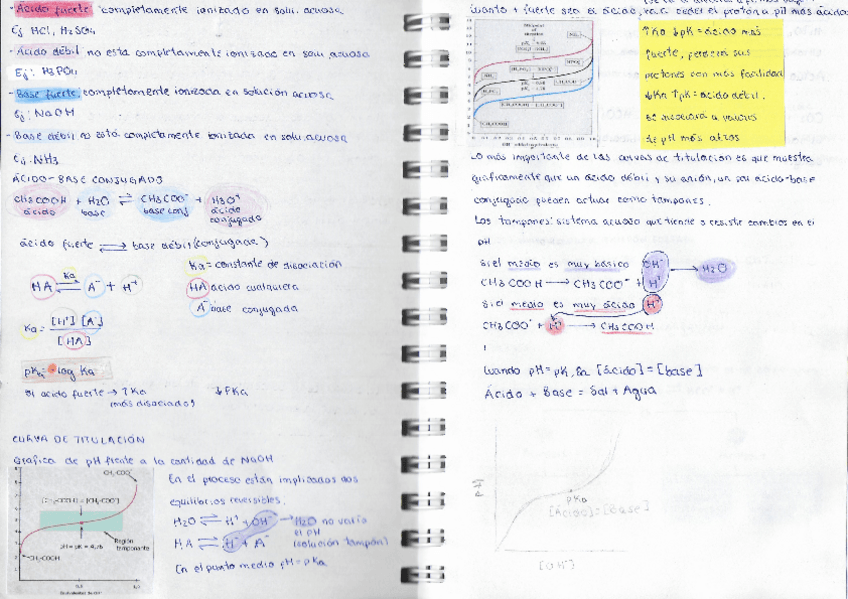 - Ácido fuerte: completamente ionizado en solu. acuosa
Ej HCl, H₂SO₄
- Ácido débil no esta completamente ionizado en solu acuosa
Ej: H₃PO₄
- Base fuerte: completamente ionizada en solución acuosa
Ej: NaOH
- Base débil no está completamente ionizada en solu. acuosa
Ej. NH₃
ÁCIDO-BASE CONJUGADO
CH₃COOH + H₂O ⇌ CH₃COO⁻ + H₃O⁺
ácido base base conj ácido conjugado
ácido fuerte ⇌ base débil (conjugada)
HA ⇌ A⁻ + H⁺
Ka
Ka = constante de disociación
HA ácido cualquiera
A⁻ base conjugada
Ka = [H⁺] [A⁻]
[HA]
pKa = -log Ka
El acido fuerte → ↑Ka ↓PKa
(más disociado)
CURVA DE TITULACIÓN
Gráfica de pH frente a la cantidad de NaOH
CH₃-COO⁻
[CH₃-COOH] = [CH₃-COO⁻]
Región
tamponante
CH₃-COOH
En el proceso están implicados dos
equilibrios reversibles.
H₂O ⇌ H⁺ + OH⁻ → H₂O no varía
el pH
(solución tampón)
HA ⇌ H⁺ + A⁻
En el punto medio pH = pKa
Cuanto + fuerte sea el ácido, va a ceder el protón a pH más ácido
↑Ka ↓pK = ácido más
fuerte, perderá sus
protones con más facilidad
↓Ka ↑pK = ácido débil.
Se disociará a valores
de pH más altos
Lo más importante de las curvas de titulación es que muestra
gráficamente que un ácido débil y su anión, un par ácido-base
conjugado pueden actuar como tampones.
Los tampones: sistema acuoso que tiende a resistir cambios en el
pH
Si el medio es muy básico OH⁻ → H₂O
CH₃COOH → CH₃COO⁻ + H⁺
Si el medio es muy ácido H⁺
CH₃COO⁻ + H⁺ → CH₃COOH
Cuando pH = pK, [ácido] = [base]
Ácido + Base = Sal + Agua
pH
pKa
[ácido] = [base]
[OH⁻]